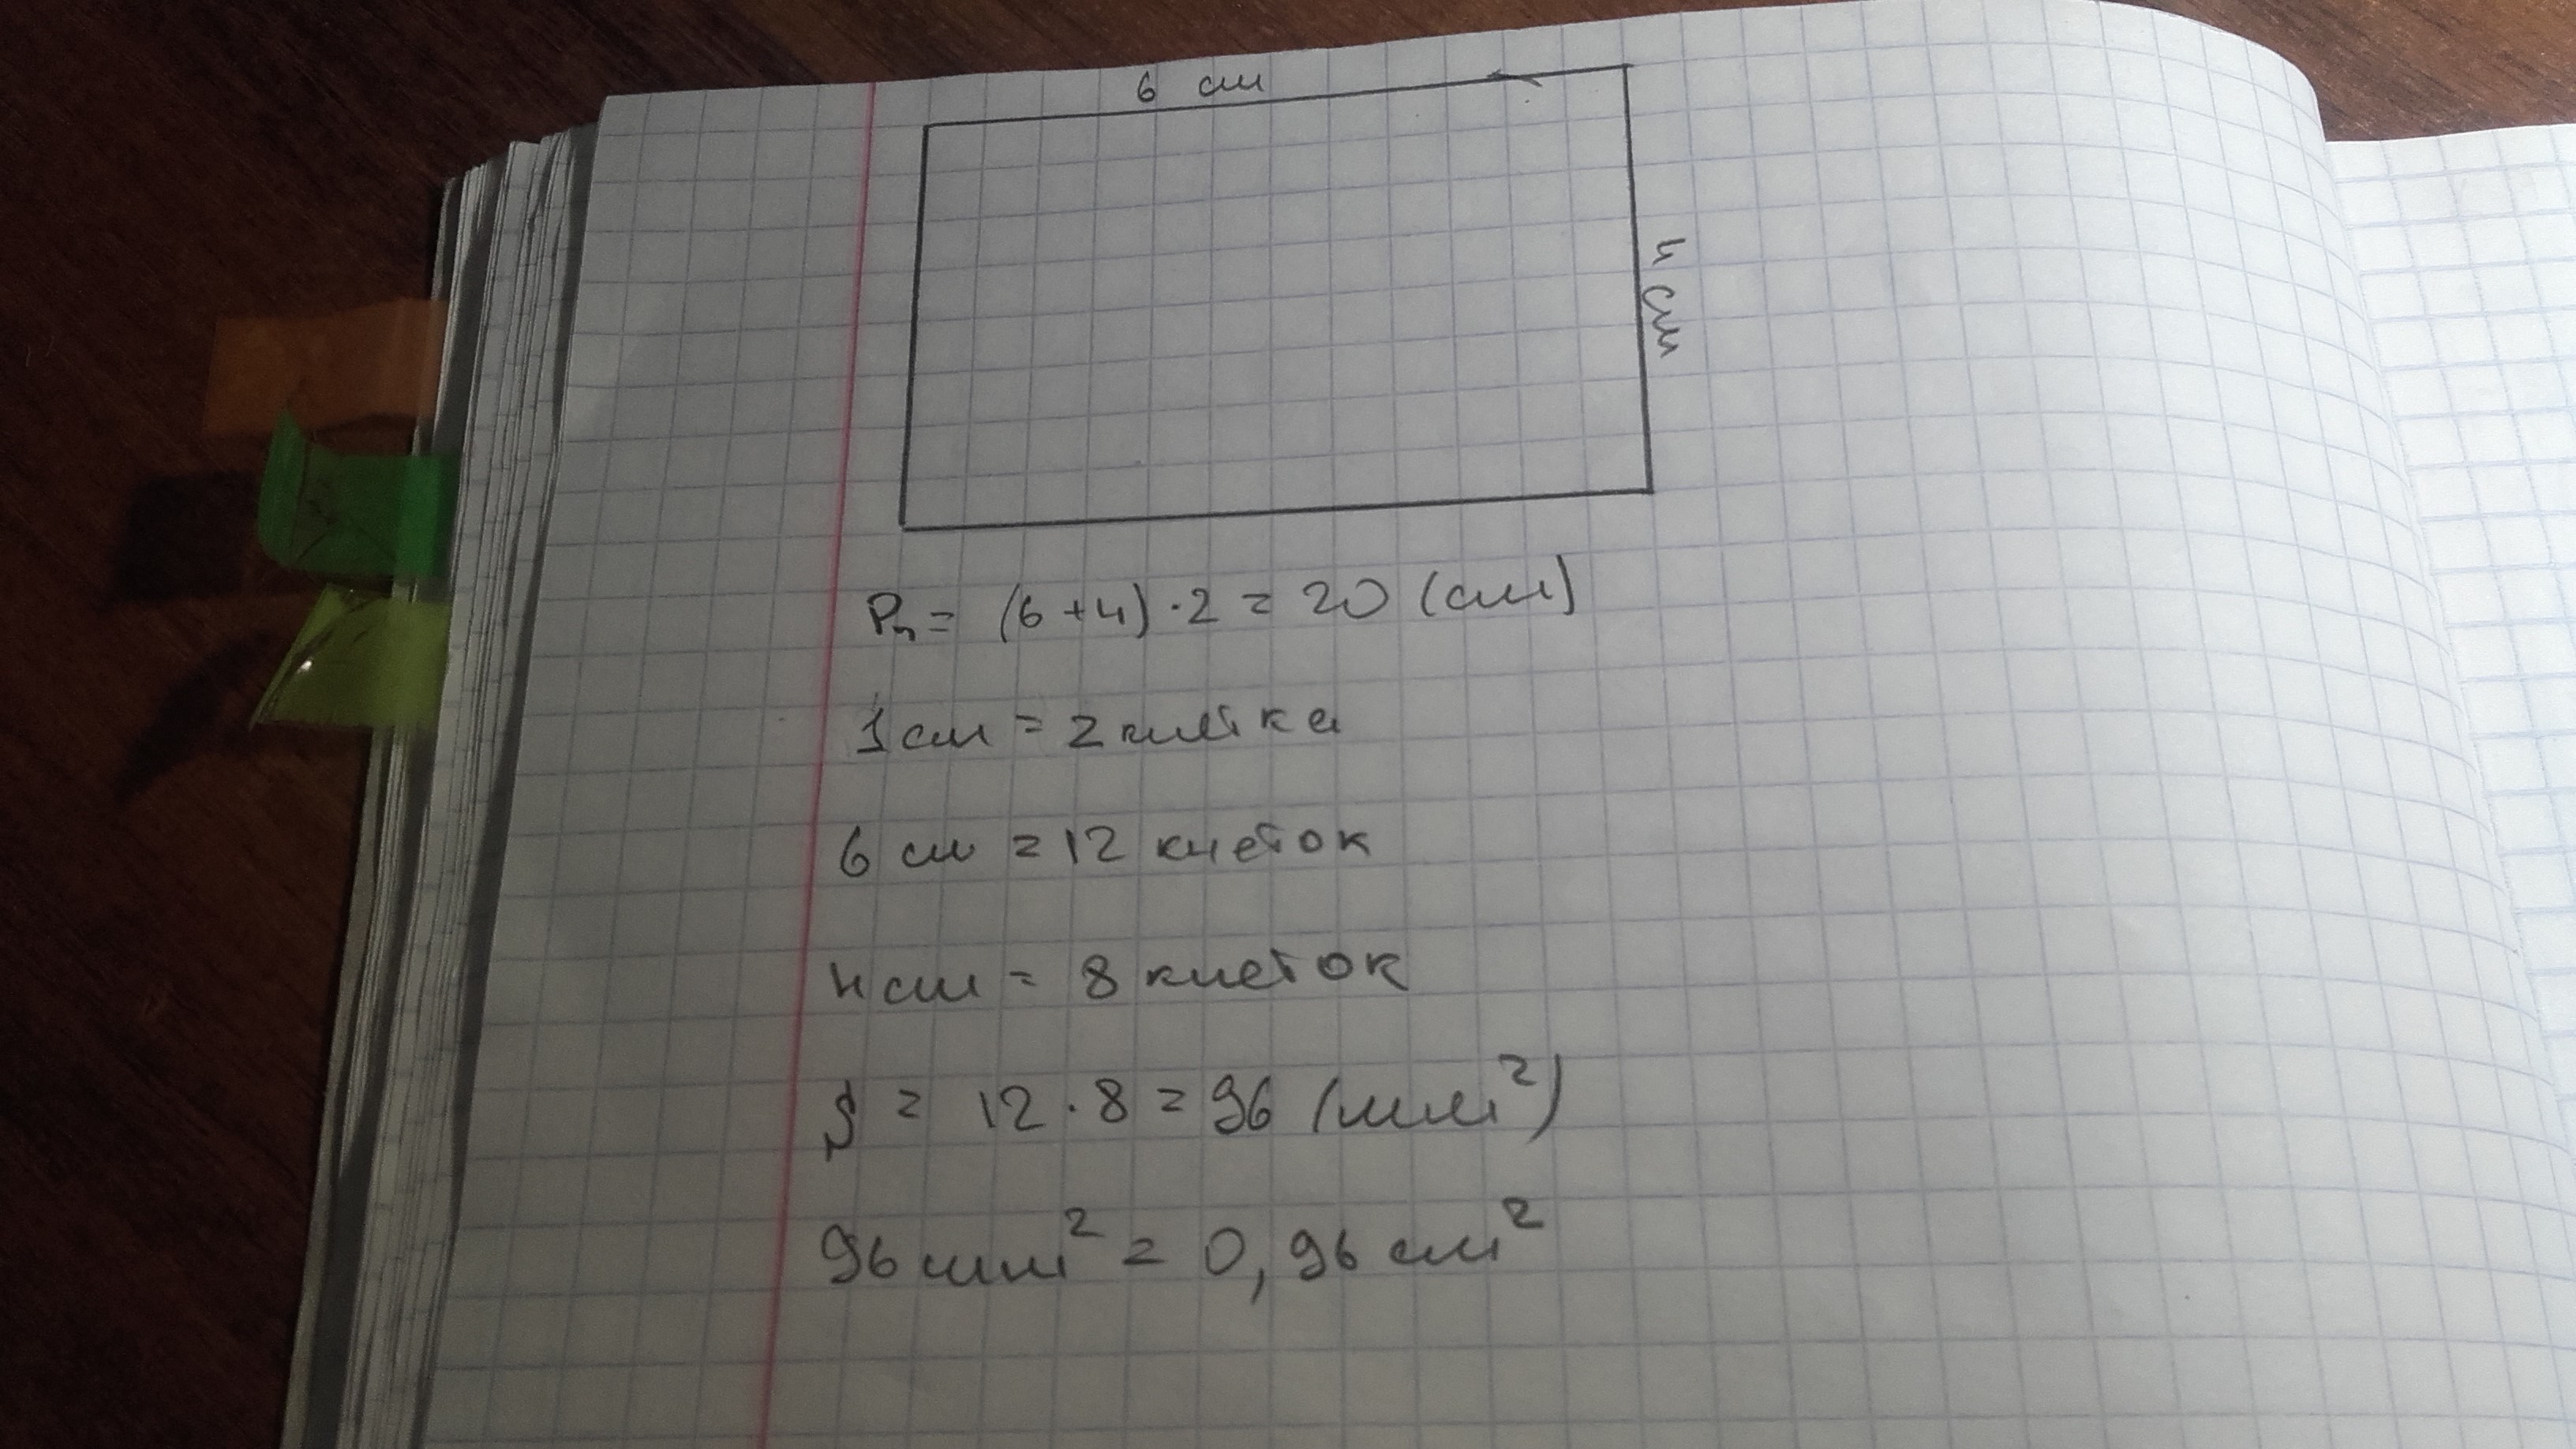 6 см
4 см
Pп = (6+4)·2 = 20 (см)
1 см = 2 клетка
6 см = 12 клеток
4 см = 8 клеток
S = 12·8 = 96 (мм²)
96 мм² = 0,96 см²